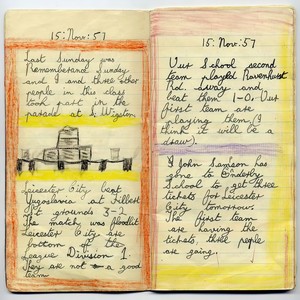 15:Nov:57
Last Sunday was
Rememberand Sunday
and I and three other
people in this class
took part in the
parade at S. Wigston
Leicester City beat
Yugoslavia at Filbert
St grounds 3-2.
The match was floodlit
Leicester City are
bottom of the
League Division 1.
They are not a good
team.
15:Nov:57
Our School second
team played Ravenhurst
Rd. away and
beat them 1-0, Our
first team are
playing them (I
think it will be a
draw).
I John Samson has
gone to Enderby
School to get three
tickets for Leicester
City tomorrow.
The first team
are having the
tickets, three people
are going.